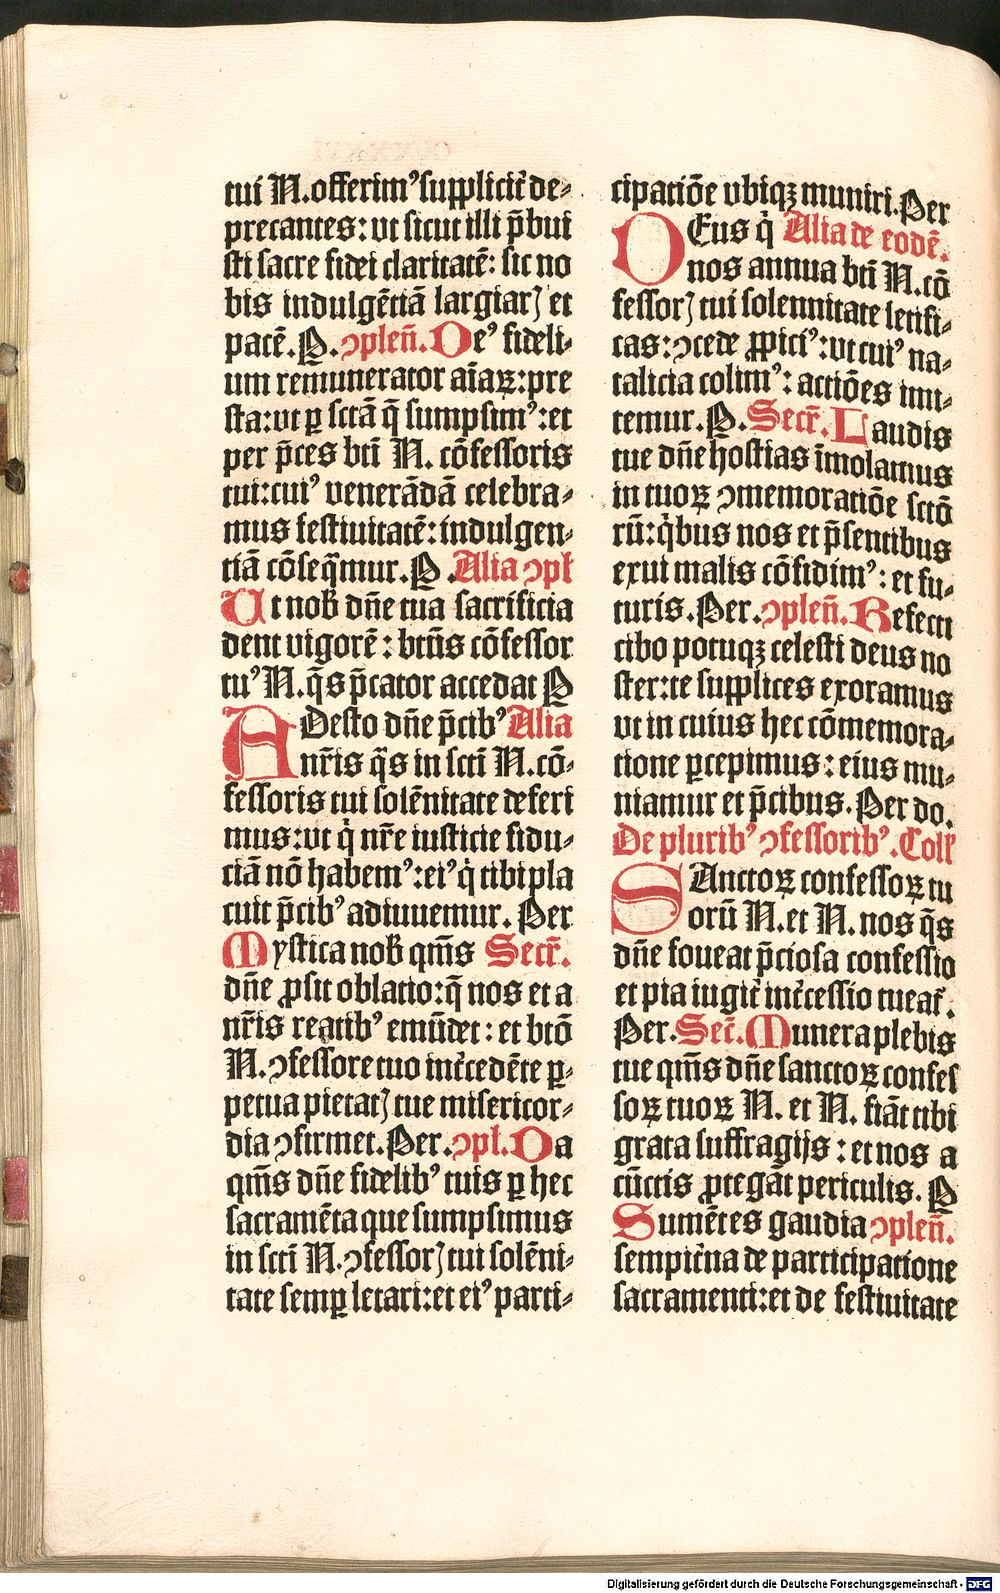 tui N. offerim⁹ supplicit̃ de⸗
precantes: vt sicut illi p̃bui
sti sacre fidei claritatẽ: sic no
bis indulgẽtiã largiarꝭ et
pacẽ. P. ↄpleñ. De⁹ fideli⸗
um remunerator aĩaꝝ: pre
sta: vt ꝑ sctã q̃ sumpsim⁹: et
per p̃ces bti̇̃ N. cõfessoris
tui: cui⁹ venerãdã celebra⸗
mus festiuitatẽ: indulgen⸗
tiã cõseq̃mur. P. Alia ↄpl
Ut nob̃ dñe tua sacrificia
dent vigorẽ: btũs cõfessor
tu⁹ N. q̃s p̃cator accedat P
ADesto dñe p̃cib⁹ Alia
nr̃is q̃s in scti̇̃ N. cõ⸗
fessoris tui solẽnitate deferi
mus: vt q̇ nr̃e iusticie fidu⸗
ciã nõ habem⁹: ei⁹ q̇ tibi pla
cuit p̃cib⁹ adiuuemur. Per
Mystica nob̃ qm̃s Secr̃.
dñe ꝓsit oblatio: q̃ nos et a
nr̃is reatib⁹ emũdet: et btõ
N. ↄfessore tuo int̃cedẽte ꝑ⸗
petua pietatꝭ tue misericor⸗
dia ↄfirmet. Per. ↄpl. Da
qm̃s dñe fidelib⁹ tuis ꝑ hec
sacramẽta que sumpsimus
in scti̇̃ N. ↄfessorꝭ tui solẽni⸗
tate semꝑ letari: et ei⁹ parti⸗
cipatiõe vbiqꝫ muniri. Per
DEus q̇ Alia de eodẽ.
nos annua bti̇̃ N. cõ
fessorꝭ tui solennitate letifi⸗
cas: ↄcede ꝓpici⁹: vt cui⁹ na⸗
talicia colim⁹: actiões imi⸗
temur. P. Secr̃. Laudis
tue dñe hostias ĩmolamus
in tuoꝝ ↄmemoratiõe sctõ
rũ: q̇bus nos et p̃sentibus
exui malis cõfidim⁹: et fu⸗
turis. Per. ↄpleñ. Refecti
cibo potuqꝫ celesti deus no
ster: te supplices exoramus
vt in cuius hec cõmemora⸗
tione ꝑcepimus: eius mu⸗
niamur et p̃cibus. Per do.
De plurib⁹ ↄfessorib⁹. Coll̃
SAnctoꝝ confessoꝝ tu
orũ N. et N. nos q̃s
dñe foueat p̃ciosa confessio
et pia iugit̃ int̃cessio tueat̃.
Per. Secr̃. Munera plebis
tue qm̃s dñe sanctoꝝ confes
soꝝ tuoꝝ N. et N. fiãt tibi
grata suffragijs: et nos a
cũctis ꝓtegãt periculis. P
Sumẽtes gaudia ↄpleñ.
sempit̃na de participatione
sacramenti: et de festiuitate
Digitalisierung gefördert durch die Deutsche Forschungsgemeinschaft - DFG